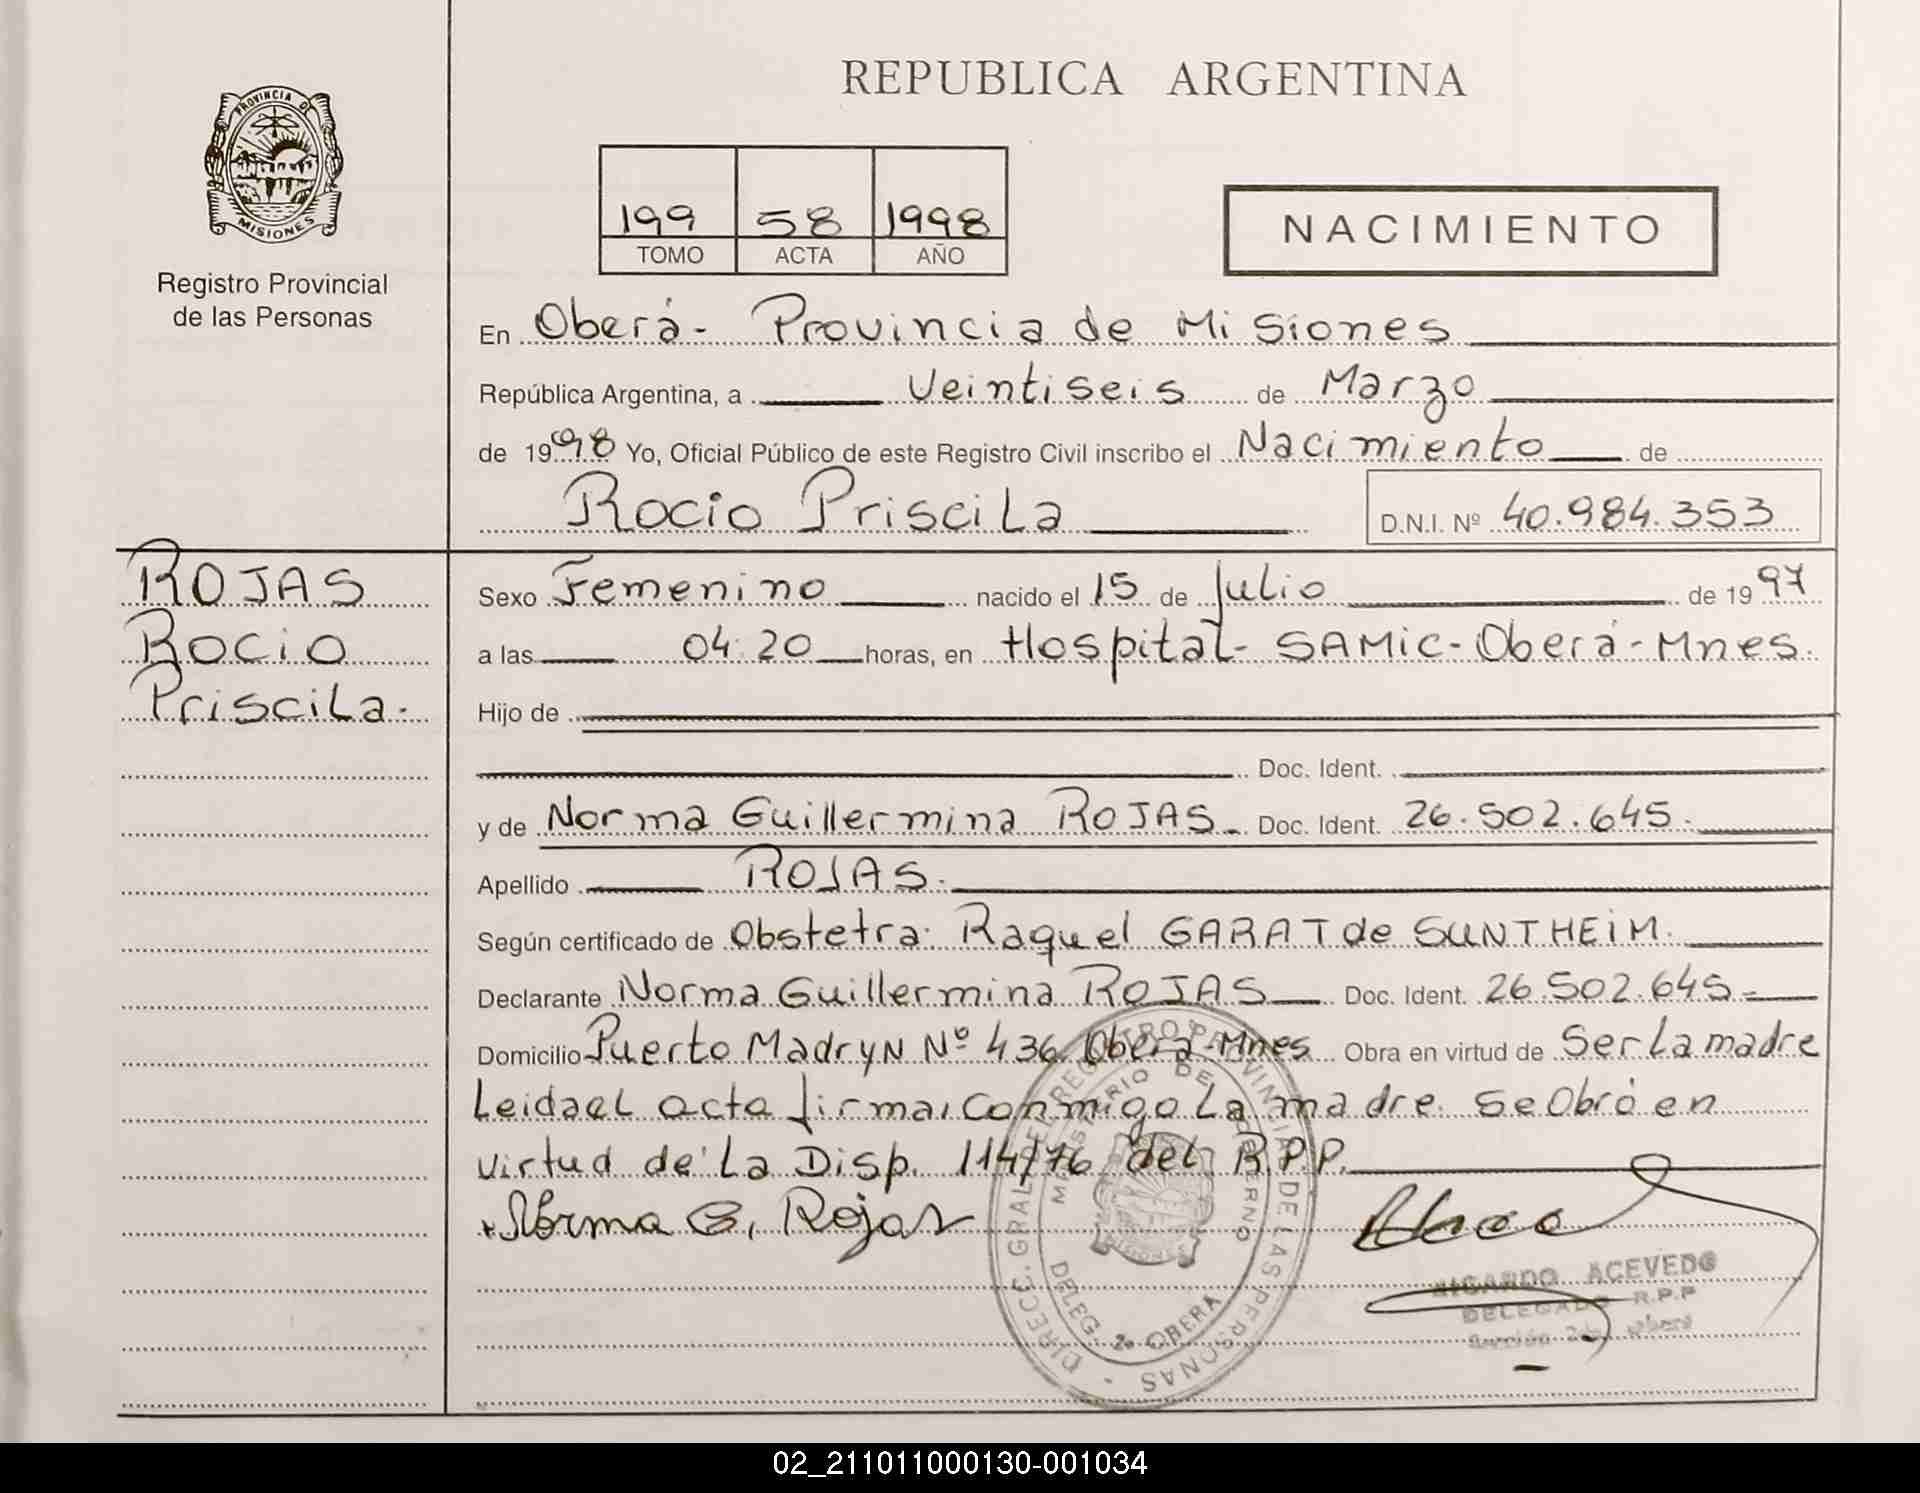 REPUBLICA ARGENTINA
PROVINCIA DE
MISIONES
Registro Provincial
de las Personas
199 58 1998
TOMO ACTA AÑO
NACIMIENTO
En Oberá- Provincia de Misiones
República Argentina, a Veintiseis de Marzo
de 1998 Yo, Oficial Público de este Registro Civil inscribo el Nacimiento de
Rocio Priscila
D.N.I. Nº 40.984.353
ROJAS
Rocio
Priscila.
Sexo Femenino nacido el 15 de Julio de 1997
a las 04:20 horas, en Hospital- SAMic-Oberá-Mnes.
Hijo de
Doc. Ident.
y de Norma Guillermina ROJAS. Doc. Ident. 26.502.645.
Apellido ROJAS.
Según certificado de Obstetra: Raquel GARAT de SUNTHEiM.
Declarante Norma Guillermina ROJAS Doc. Ident. 26.502.645-
Domicilio Puerto Madryn Nº 436 Oberá-Mnes Obra en virtud de Ser la madre
Leida el acta firma conmigo la madre. Se Obró en
virtud de la Disp. 114/76 del R.P.P.
Norma G. Rojas
DIRECC. GRAL. DEL REGISTRO PROVINCIAL DE LAS PERSONAS -
MINISTERIO DE GOBIERNO
MISIONES
DELEG. 2º OBERA
RICARDO ACEVEDO
DELEGADO R.P.P
Sección 2da
02_211011000130-001034